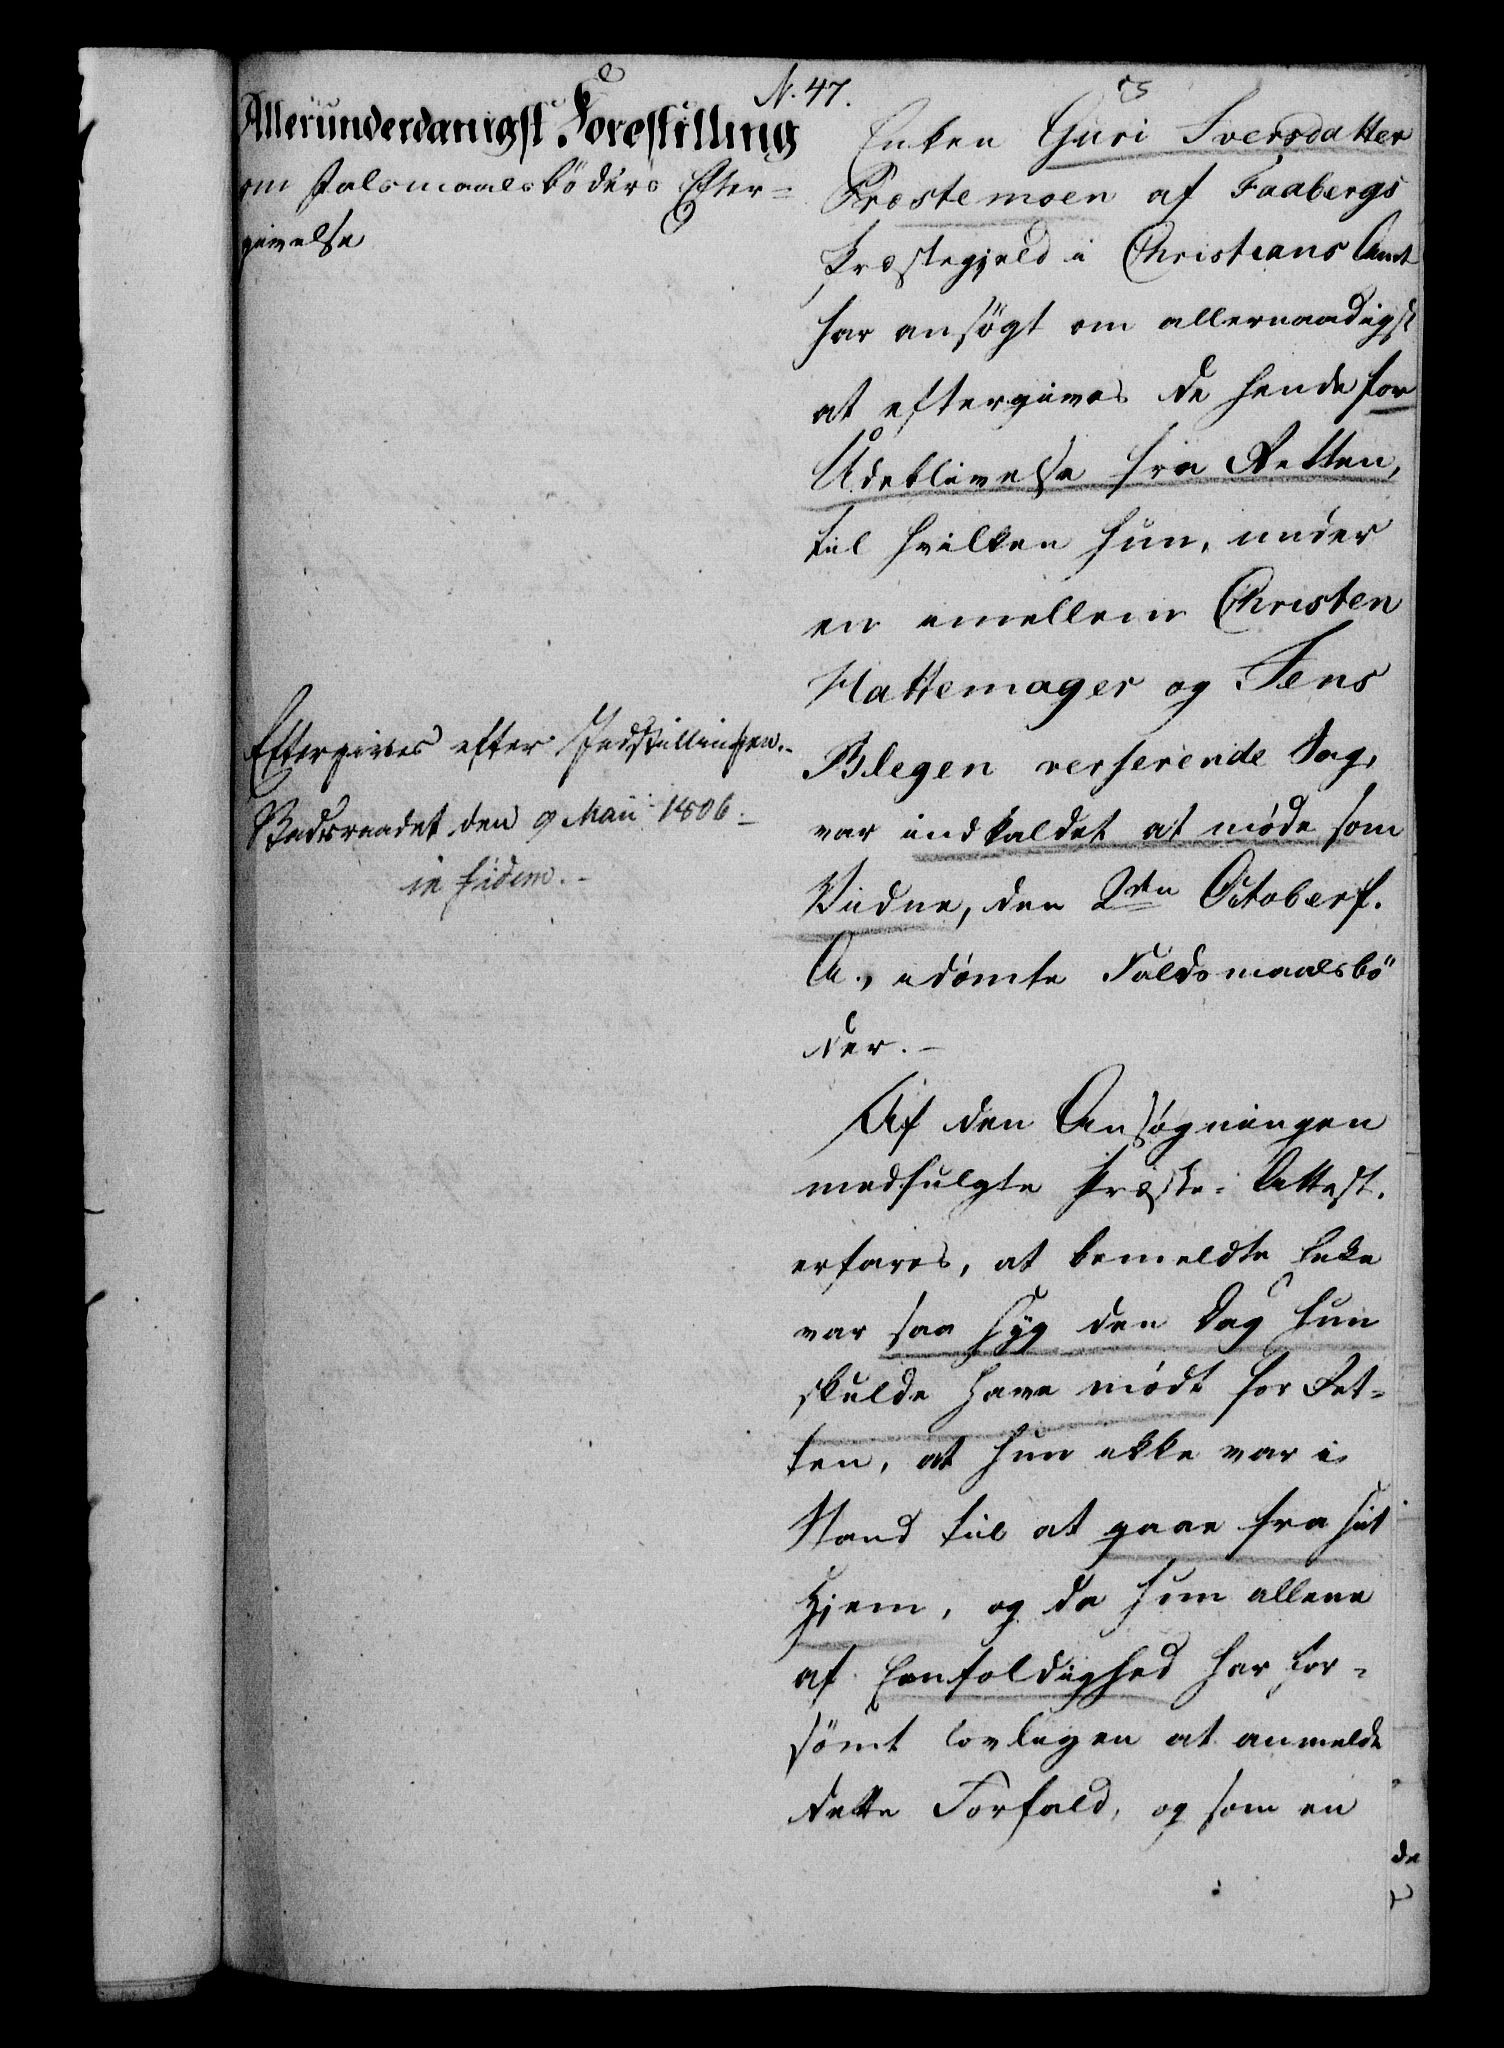 N. 47.
Allerunderdanigst Forestilling
om Falsmaalsbøders Efter=
givelse
Eftergives efter Indstillingen.-
Stadsraadet den 9 Maii 1806.-
in fidem.-
Enken Guri Iversdatter
Præstemoen af Faabergs
Præstegjeld i Christians Amt
har ansøgt om allernaadigst
at eftergives de hende for
Udeblivelse fra Retten,
til hvilken hun, under
en imellem Christen
Hattemager og Jens
Blegen verserende Sag,
var indkaldet at møde som
Vidne, den 2den October f.
A., idømte Faldsmaalsbö
der.-
Af den Ansøgningen
medfulgte Præste-Attest.
erfares, at bemeldte Enke
var saa syg den Dag hun
skulde have mødt for Ret-
ten, at hun ikke var i
Stand til at gaae fra sit
Hjem, og da hun allene
af Eenfoldighed har for-
sömt lovligen at anmelde
dette Forfald, og som en
de